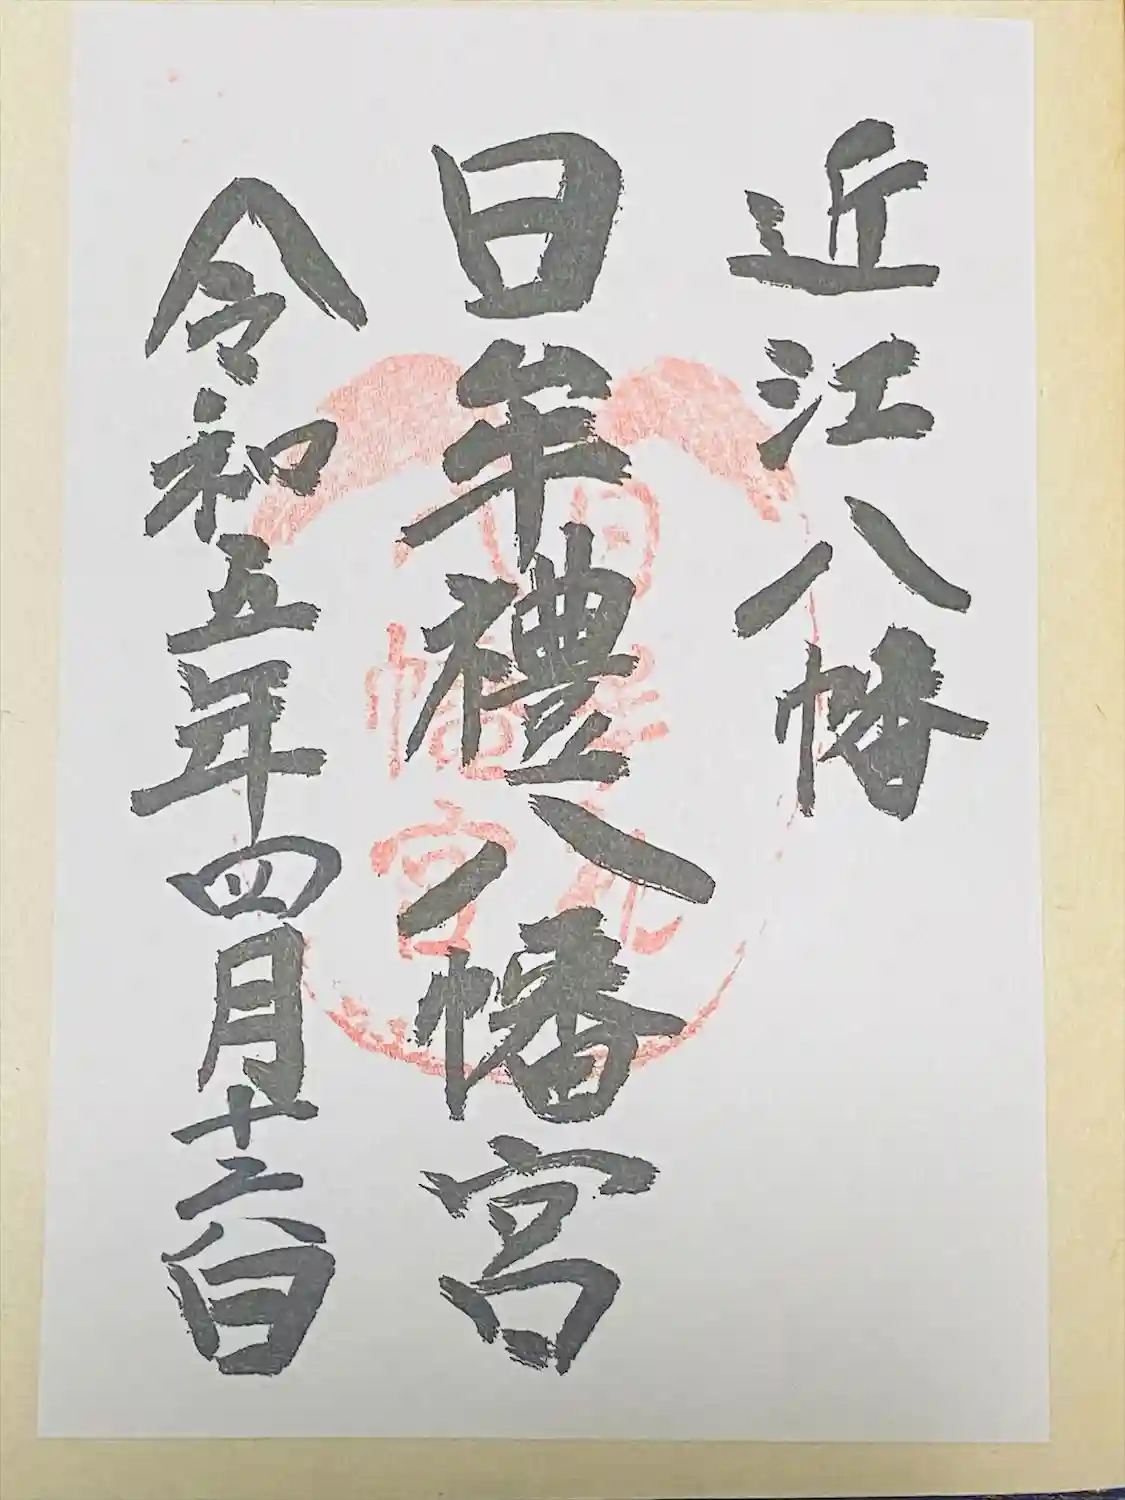 近江八幡
日牟禮八幡宮
令和五年四月十二日
日牟禮
八幡宮